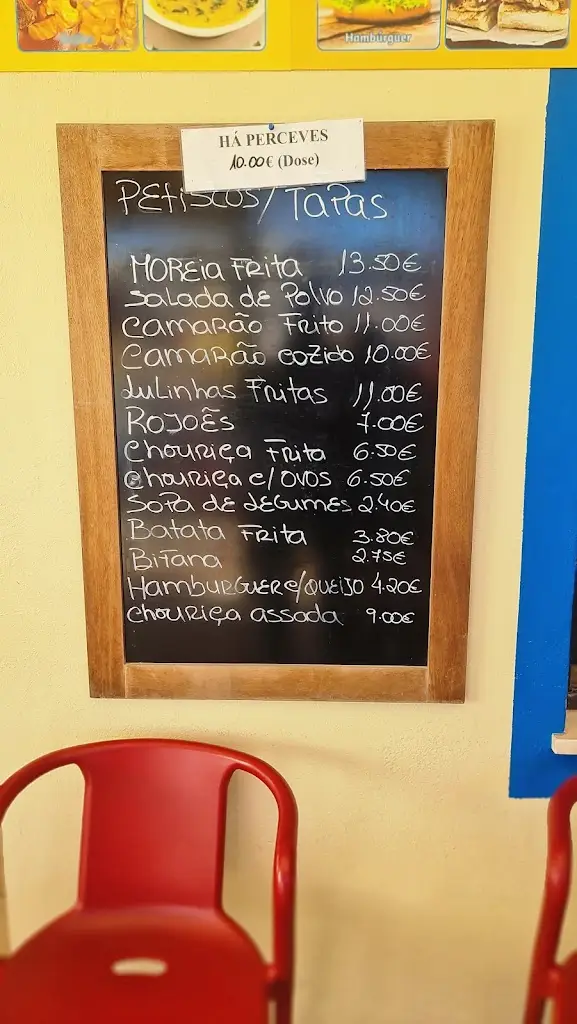 Hambúrguer
HÁ PERCEVES
10.00€ (Dose)
PETISCOS/TAPAS
MOREIA FRITA 13.50€
SALADA DE POLVO 12.50€
CAMARÃO FRITO 11.00€
CAMARÃO COZIDO 10.00€
LULINHAS FRITAS 11.00€
ROJOẼS 7.00€
CHOURIÇA FRITA 6.50€
CHOURIÇA C/OVOS 6.50€
SOPA DE LEGUMES 2.40€
BATATA FRITA 3.80€
BIFANA 2.75€
HAMBURGUER C/QUEIJO 4.20€
CHOURIÇA ASSADA 9.00€